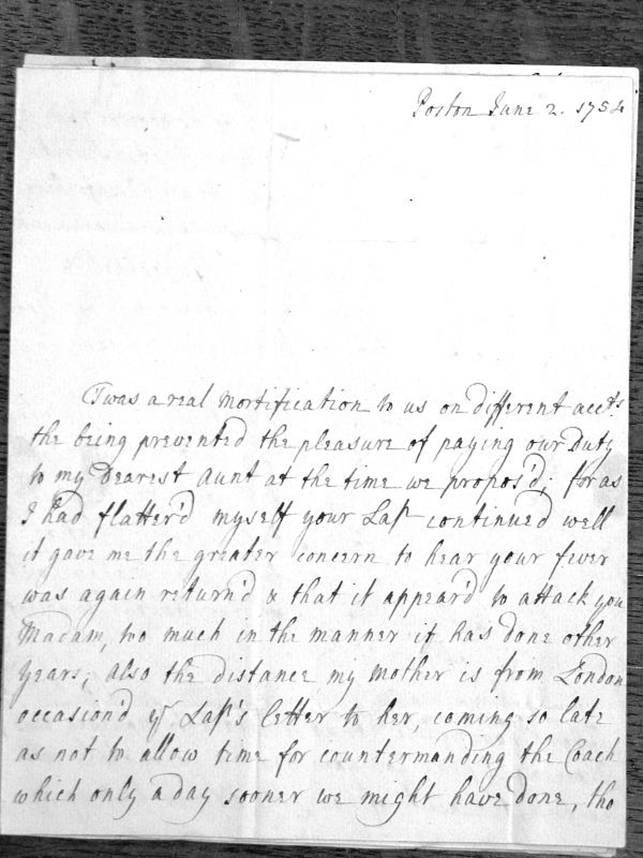 Poston June 2. 1754
Twas a real Mortification to us on different acc.ts
the being prevented the pleasure of paying our Duty
to my Dearest Aunt at the time we propos'd; for as
I had flatter'd myself your Lap continued well
it gave me the greater concern to hear your fever
was again return'd & that it appear'd to attack you
Madam, too much in the manner it has done other
years; also the distance my Mother is from London
occasion'd yr Lap's Letter to her, coming so late
as not to allow time for countermanding the Coach
which only a day sooner we might have done, tho